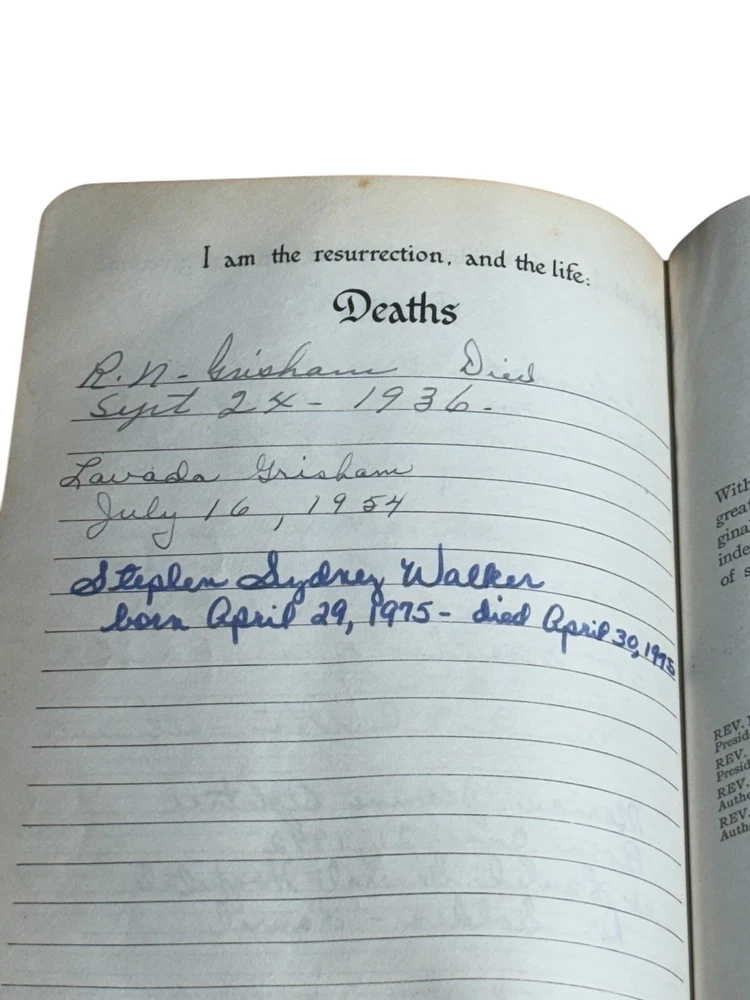 I am the resurrection, and the life:
Deaths
R. N. - Grisham Died
Sept 24 - 1936 -
Lavada Grisham
July 16, 1954
Stephen Sydney Walker
born April 29, 1975 - died April 30, 1975
With
great
gina
inde
of s
REV.
Presid
REV.
Presid
REV.
Autho
REV.
Auth